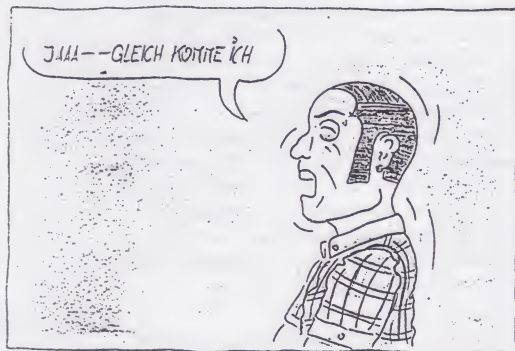 JAAA--GLEICH KOMME ICH